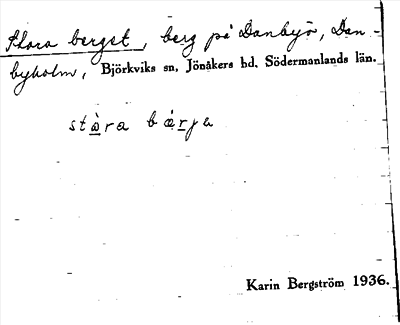 Stora berget, berg på Danbyö, Dan-
byholm, Björkviks sn, Jönåkers hd, Södermanlands län.
stàra bǽrje
Karin Bergström 1936.